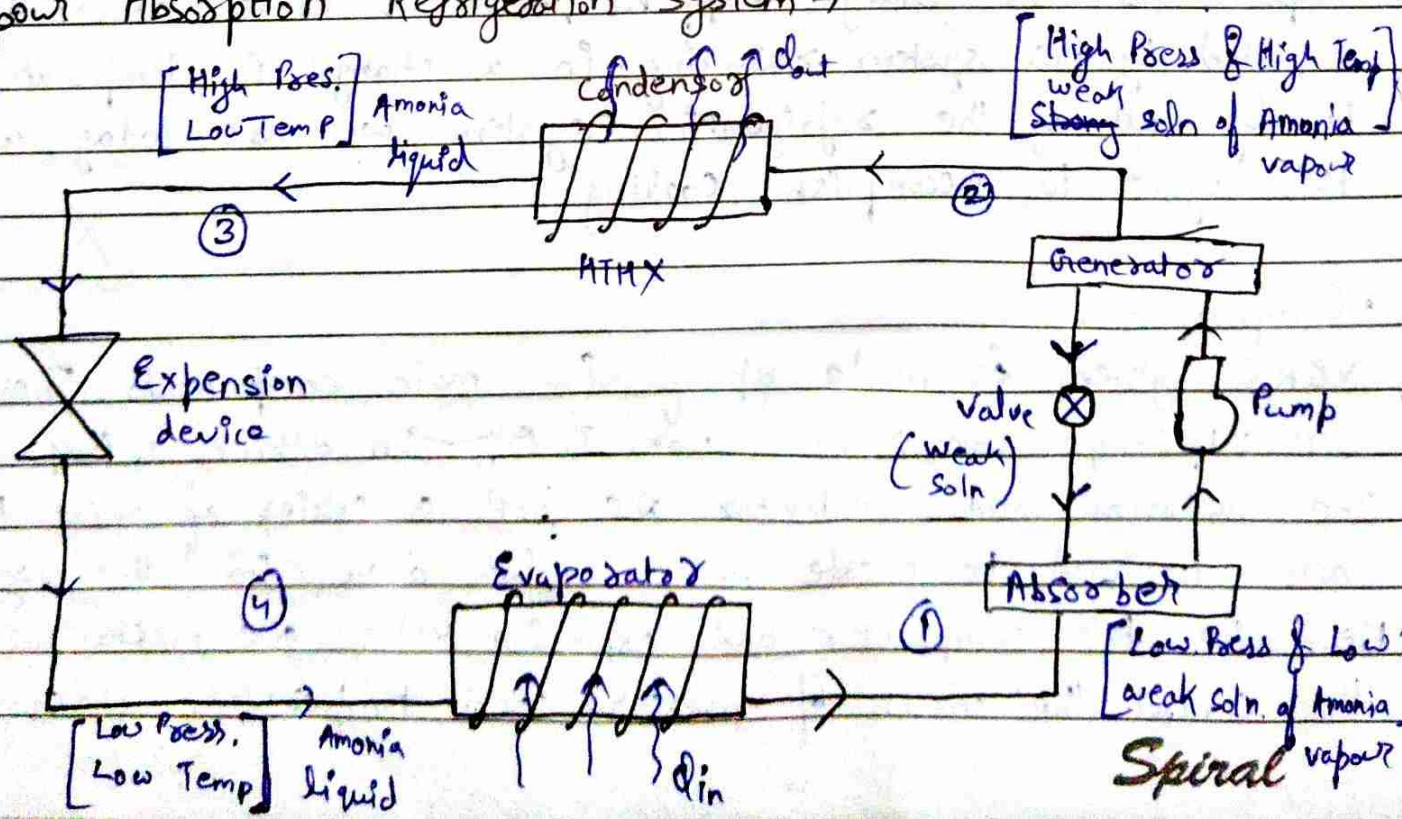 Absorption Refrigeration System →
[High Pres.
Low Temp]
Amonia
liquid
Condensor
Qout
[High Press & High Temp
weak
Strong soln of Amonia
vapour]
③
HTHX
②
Generator
Expension
device
Valve
(weak
soln)
Pump
④
Evaporator
①
Absorber
[Low Press & Low
weak soln. of Amonia
vapour
[Low Press.
Low Temp]
Amonia
liquid
Qin
Spiral